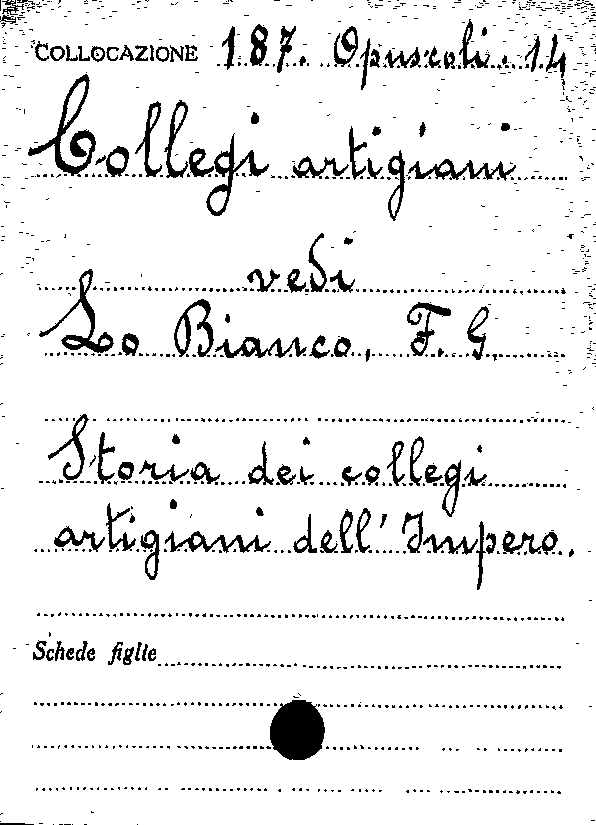 COLLOCAZIONE 187. Opuscoli. 14
Collegi artigiani
vedi
Lo Bianco, F. G.
Storia dei collegi
artigiani dell' Impero.
Schede figlie